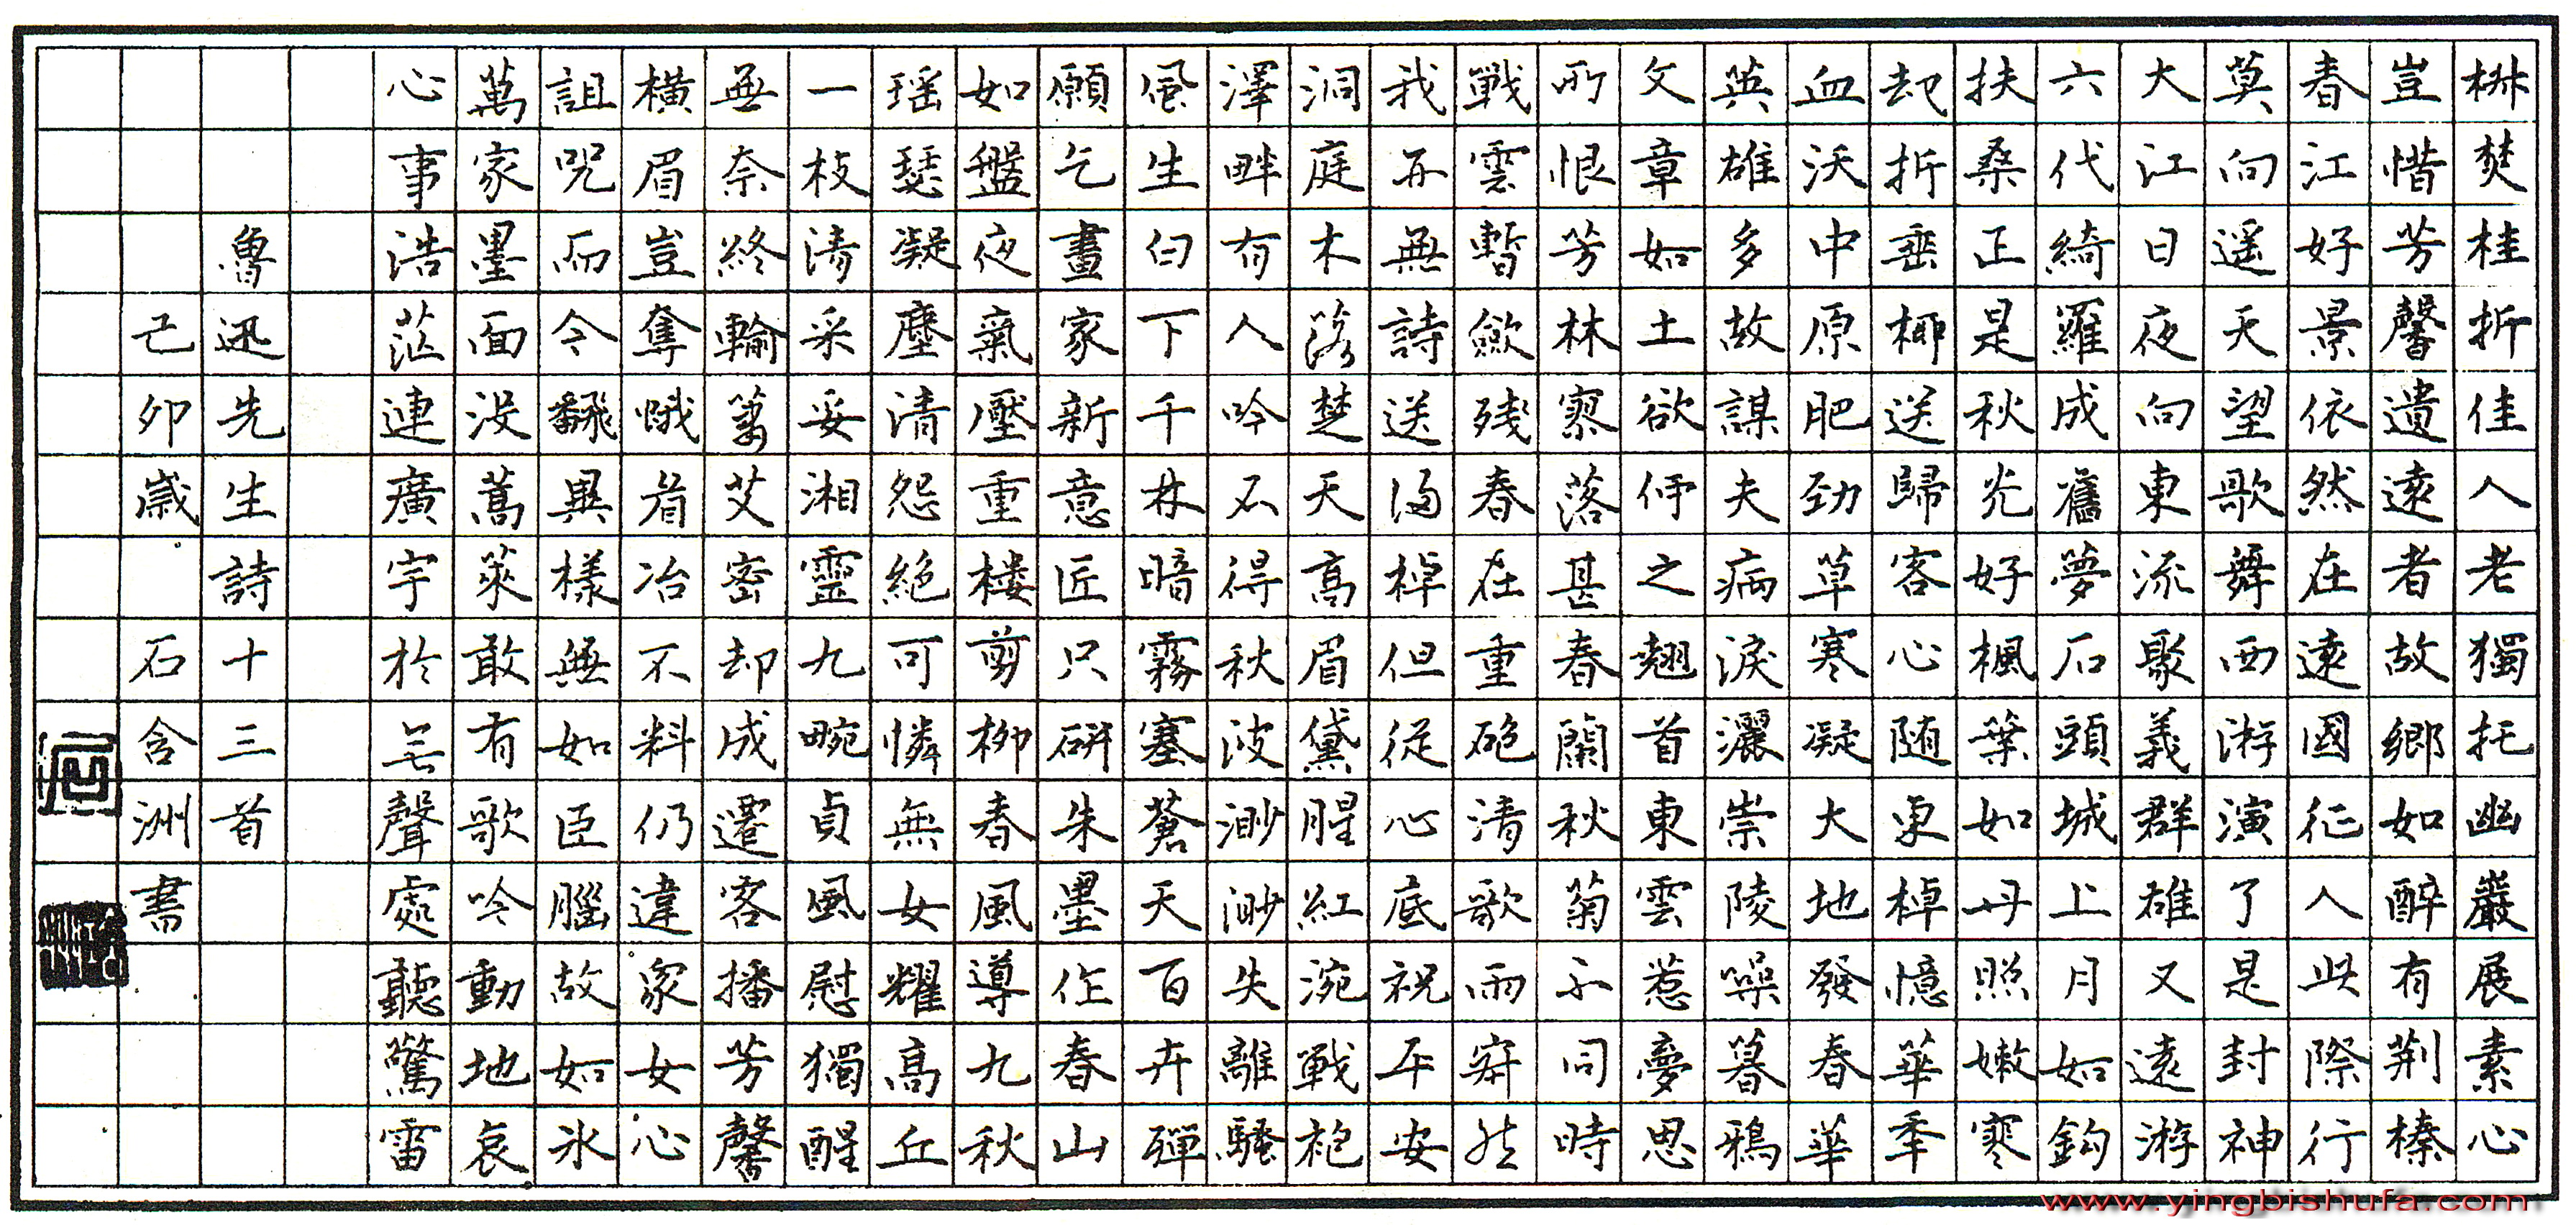 椒焚桂折佳人老獨托幽巖展素心
豈惜芳馨遺遠者故鄉如醉有荆榛
春江好景依然在遠國征人此際行
莫向遥天望歌舞西游演了是封神
大江日夜向東流聚義群雄又遠游
六代綺羅成舊夢石頭城上月如鈎
扶桑正是秋光好楓葉如丹照嫩寒
却折垂楊送歸客心随東棹憶華年
血沃中原肥勁草寒凝大地發春華
英雄多故謀夫病淚灑崇陵噪暮鴉
文章如土欲何之翹首東雲惹夢思
所恨芳林寥落甚春蘭秋菊不同時
戰雲暫斂殘春在重砲清歌兩寂然
我亦無詩送歸棹但從心底祝平安
洞庭木落楚天高眉黛腥紅涴戰袍
澤畔有人吟不得秋波渺渺失離騷
風生白下千林暗霧塞蒼天百卉殫
願乞畫家新意匠只研朱墨作春山
如盤夜氣壓重樓剪柳春風導九秋
瑶瑟凝塵清怨絶可憐無女耀高丘
一枝清采妥湘靈九畹貞風慰獨醒
無奈終輸蕭艾密却成遷客播芳馨
横眉豈奪蛾眉冶不料仍違衆女心
詛咒而今翻異樣無如臣腦故如冰
萬家墨面没蒿萊敢有歌吟動地哀
心事浩茫連廣宇於無聲處聽驚雷
魯迅先生詩十三首
己卯歲 石含洲書
www.yingbishufa.com